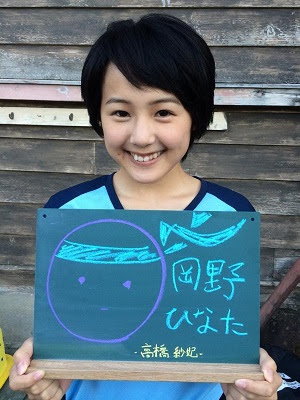 岡野
ひなた
-高橋紗妃-